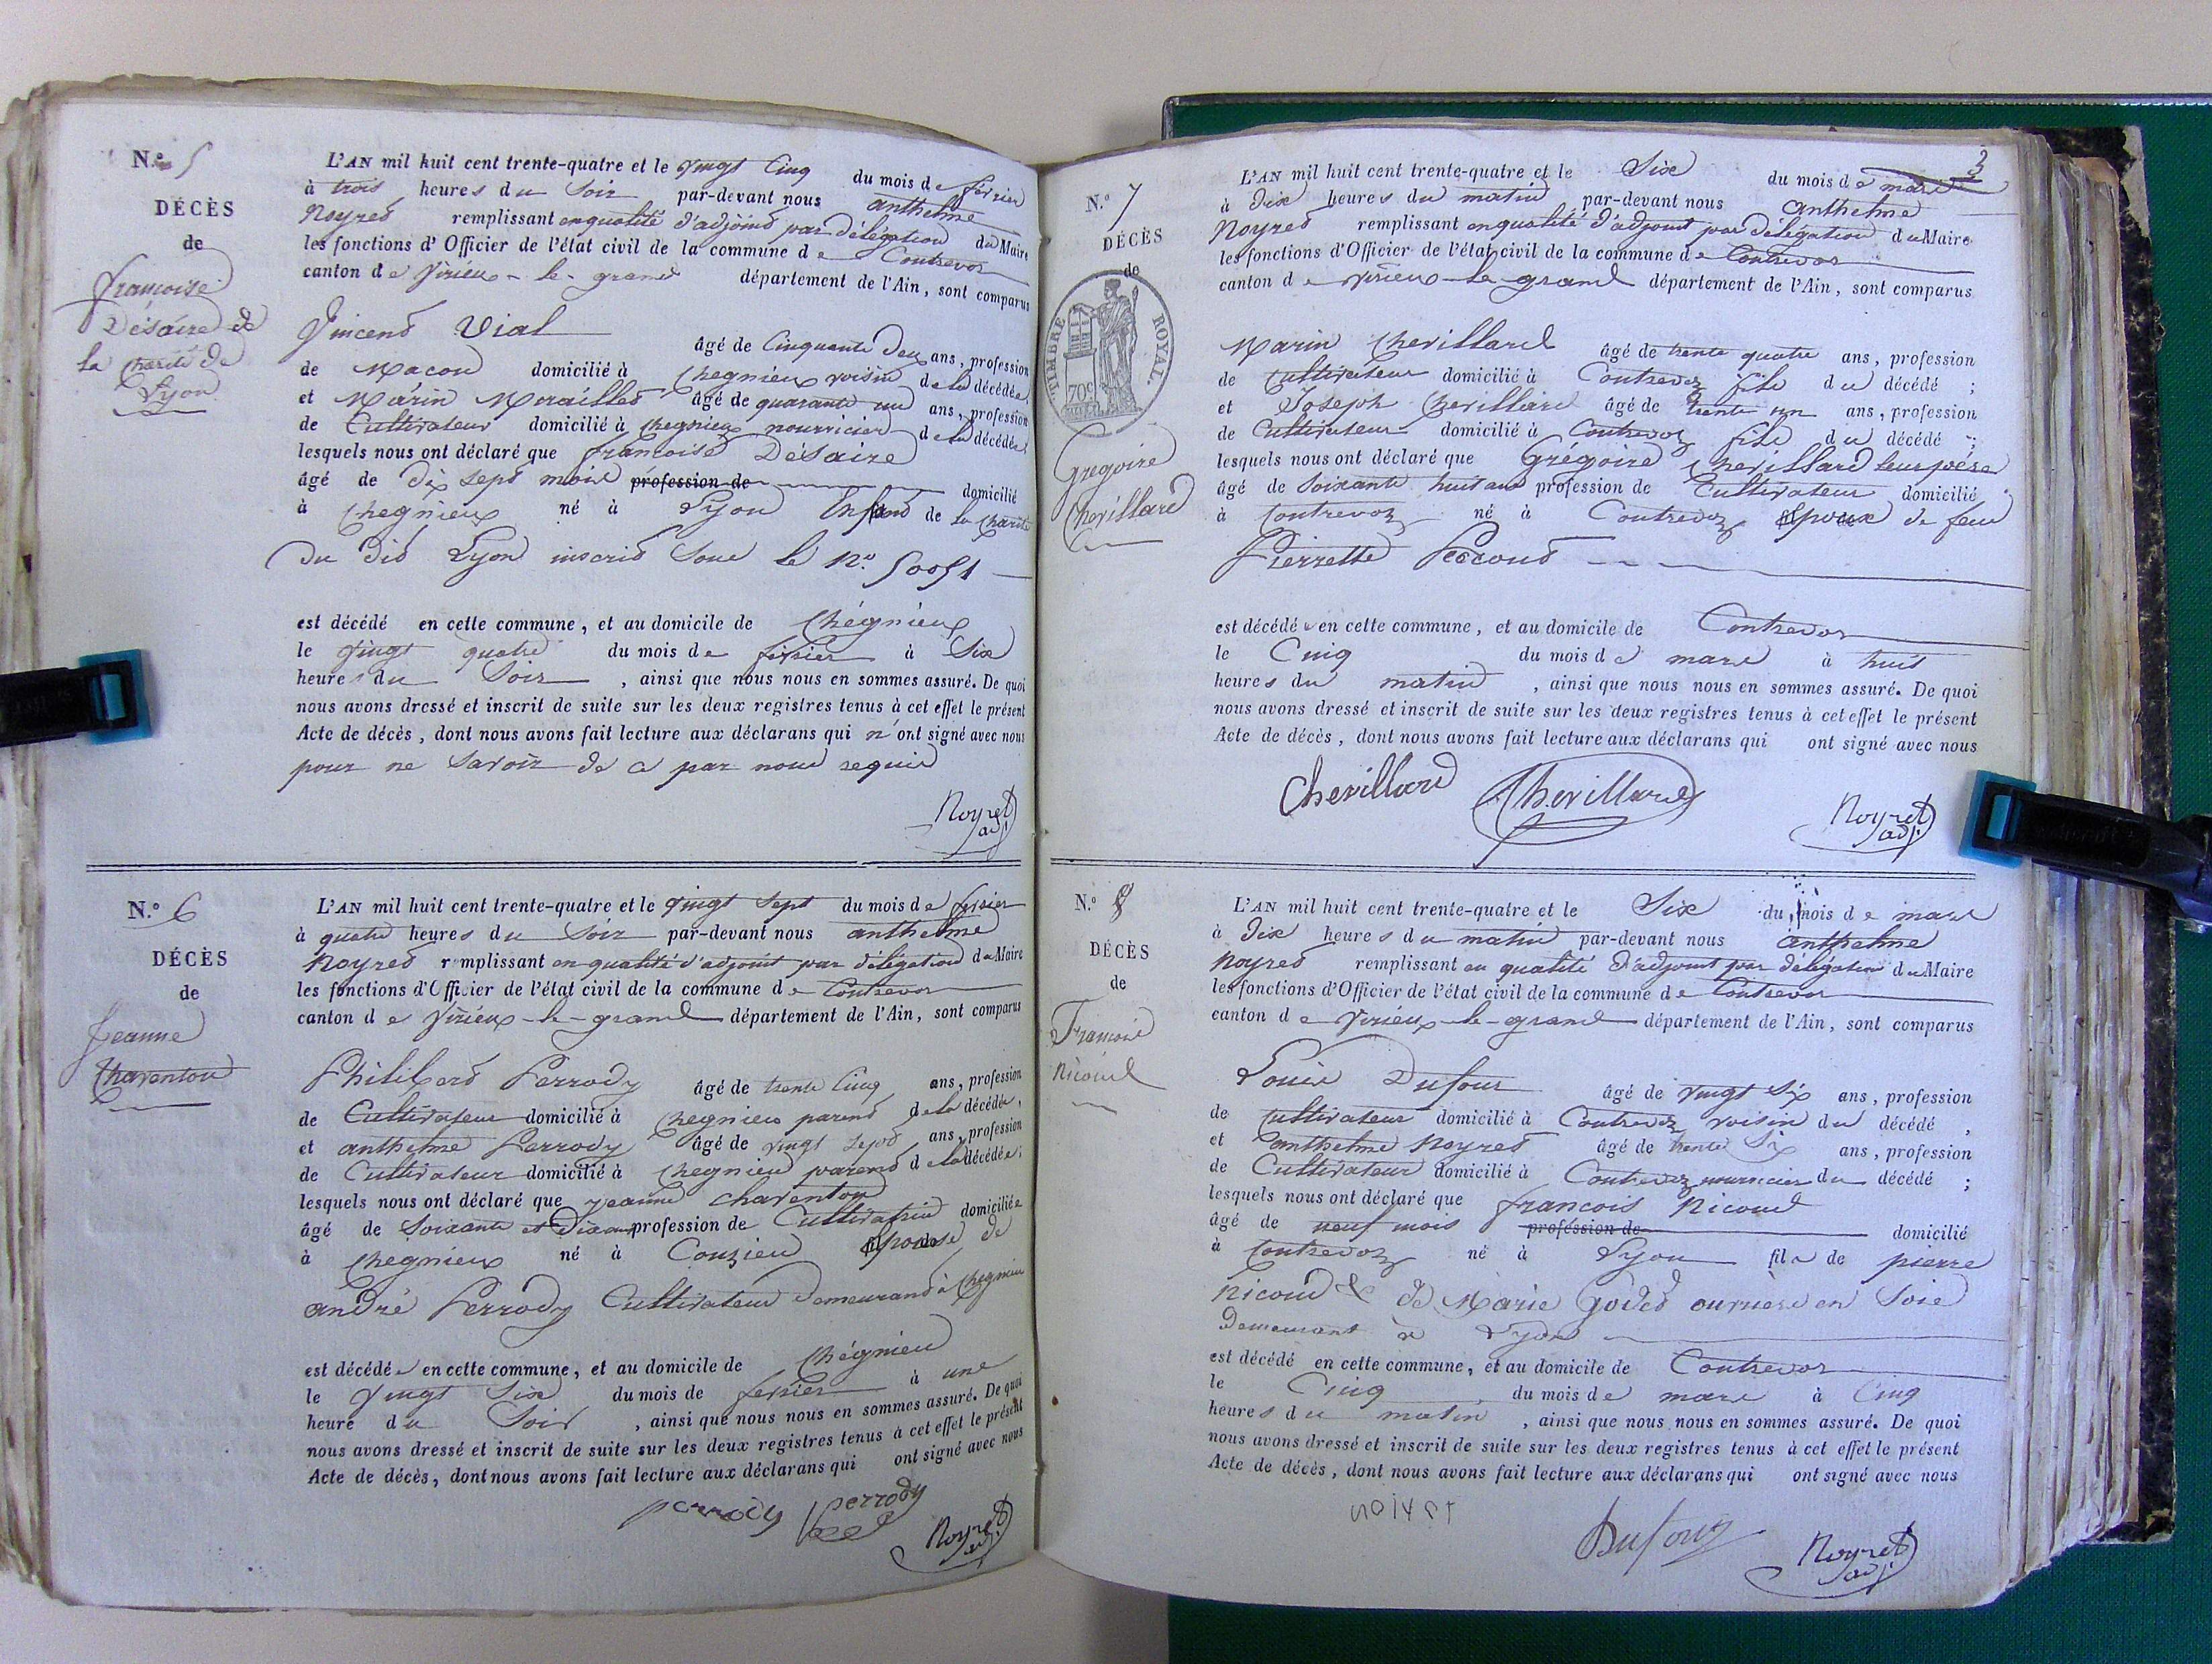 N.º 5
DÉCÈS
de
françoise
Désaire de
la charité de
Lyon
L'AN mil huit cent trente-quatre et le vingt Cinq du mois de fevrier
à trois heures du Soir par-devant nous anthelme
Noyret remplissant en qualité d'adjoint par délégation du Maire
les fonctions d'Officier de l'état civil de la commune de Contrevoz
canton de Virieux-le-grand département de l'Ain, sont comparus
Vincent Vial âgé de Cinquante Deux ans, profession
de Macon domicilié à Chegnieux voisin de la décédée
et Marin Meraillet âgé de quarante un ans, profession
de Cultivateur domicilié à Chegnieux nourricier de la décédée
lesquels nous ont déclaré que françoise Désaire
âgé de Dix sept mois profession de domicilié
à Chegnieux né à Lyon Enfant de la charité
du dit Lyon inscrit Sous le Nº. 50051
est décédé en cette commune, et au domicile de Chégnieux
le Vingt quatre du mois de fevrier à Six
heures du Soir, ainsi que nous nous en sommes assuré. De quoi
nous avons dressé et inscrit de suite sur les deux registres tenus à cet effet le présent
Acte de décès, dont nous avons fait lecture aux déclarans qui n'ont signé avec nous
pour ne Savoir de ce par nous requis
Noyret
adj.
N.º 6
DÉCÈS
de
Jeanne
Charenton
L'AN mil huit cent trente-quatre et le vingt Sept du mois de fevrier
à quatre heures du Soir par-devant nous anthelme
Noyret remplissant en qualité d'adjoint par délégation du Maire
les fonctions d'Officier de l'état civil de la commune de Contrevoz
canton de Virieux-le-grand département de l'Ain, sont comparus
Philibert Perrody âgé de trente Cinq ans, profession
de Cultivateur domicilié à Chegnieu parent de la décédée,
et anthelme Perrody âgé de vingt Sept ans, profession
de Cultivateur domicilié à Chegnieu parent de la décédée;
lesquels nous ont déclaré que Jeanne Charenton
âgé de Soixante et Dix ans profession de Cultivatrice domiciliée
à Chegnieux né à Conzieu Epouse de
André Perrody Cultivateur Demeurant à Chegnieu
est décédée en cette commune, et au domicile de Chégnieu
le Vingt Six du mois de fevrier à une
heure du Soir, ainsi que nous nous en sommes assuré. De quoi
nous avons dressé et inscrit de suite sur les deux registres tenus à cet effet le présent
Acte de décès, dont nous avons fait lecture aux déclarans qui ont signé avec nous
perrody perrody
Noyret
adj.
3
N.º 7
DÉCÈS
de
TIMBRE ROYAL.
70c
Gregoire
Chevillard
L'AN mil huit cent trente-quatre et le Six du mois de mars
à Dix heures du matin par-devant nous anthelme
Noyret remplissant en qualité d'adjoint par délégation du Maire
les fonctions d'Officier de l'état civil de la commune de Contrevoz
canton de Virieux-le-grand département de l'Ain, sont comparus
Marin Chevillard âgé de trente quatre ans, profession
de Cultivateur domicilié à Contrevoz fils du décédé ;
et Joseph Chevillard âgé de trente un ans, profession
de Cultivateur domicilié à Contrevoz fils du décédé ;
lesquels nous ont déclaré que Grégoire Chevillard leur père
âgé de Soixante huit ans profession de Cultivateur domicilié
à Contrevoz né à Contrevoz Epoux de feue
Pierrette
est décédé en cette commune, et au domicile de Contrevoz
le Cinq du mois de mars à huit
heures du matin, ainsi que nous nous en sommes assuré. De quoi
nous avons dressé et inscrit de suite sur les deux registres tenus à cet effet le présent
Acte de décès, dont nous avons fait lecture aux déclarans qui ont signé avec nous
Chevillard Chevillard
Noyret
adj.
N.º 8
DÉCÈS
de
François
Nicoud
L'AN mil huit cent trente-quatre et le Six du mois de mars
à Dix heures du matin par-devant nous anthelme
Noyret remplissant en qualité d'adjoint par délégation du Maire
les fonctions d'Officier de l'état civil de la commune de Contrevoz
canton de Virieux-le-grand département de l'Ain, sont comparus
Louis Dufour âgé de Vingt Six ans, profession
de Cultivateur domicilié à Contrevoz voisin du décédé ,
et anthelme Noyret âgé de trente Six ans, profession
de Cultivateur domicilié à Contrevoz nourricier du décédé ;
lesquels nous ont déclaré que françois Nicoud
âgé de neuf mois profession de domicilié
à Contrevoz né à Lyon fils de pierre
Nicoud & de Marie Godet ouvriers en Soie
Demeurant à Lyon
est décédé en cette commune, et au domicile de Contrevoz
le Cinq du mois de mars à Cinq
heures du matin, ainsi que nous nous en sommes assuré. De quoi
nous avons dressé et inscrit de suite sur les deux registres tenus à cet effet le présent
Acte de décès, dont nous avons fait lecture aux déclarans qui ont signé avec nous
Dufour
Noyret
adj.